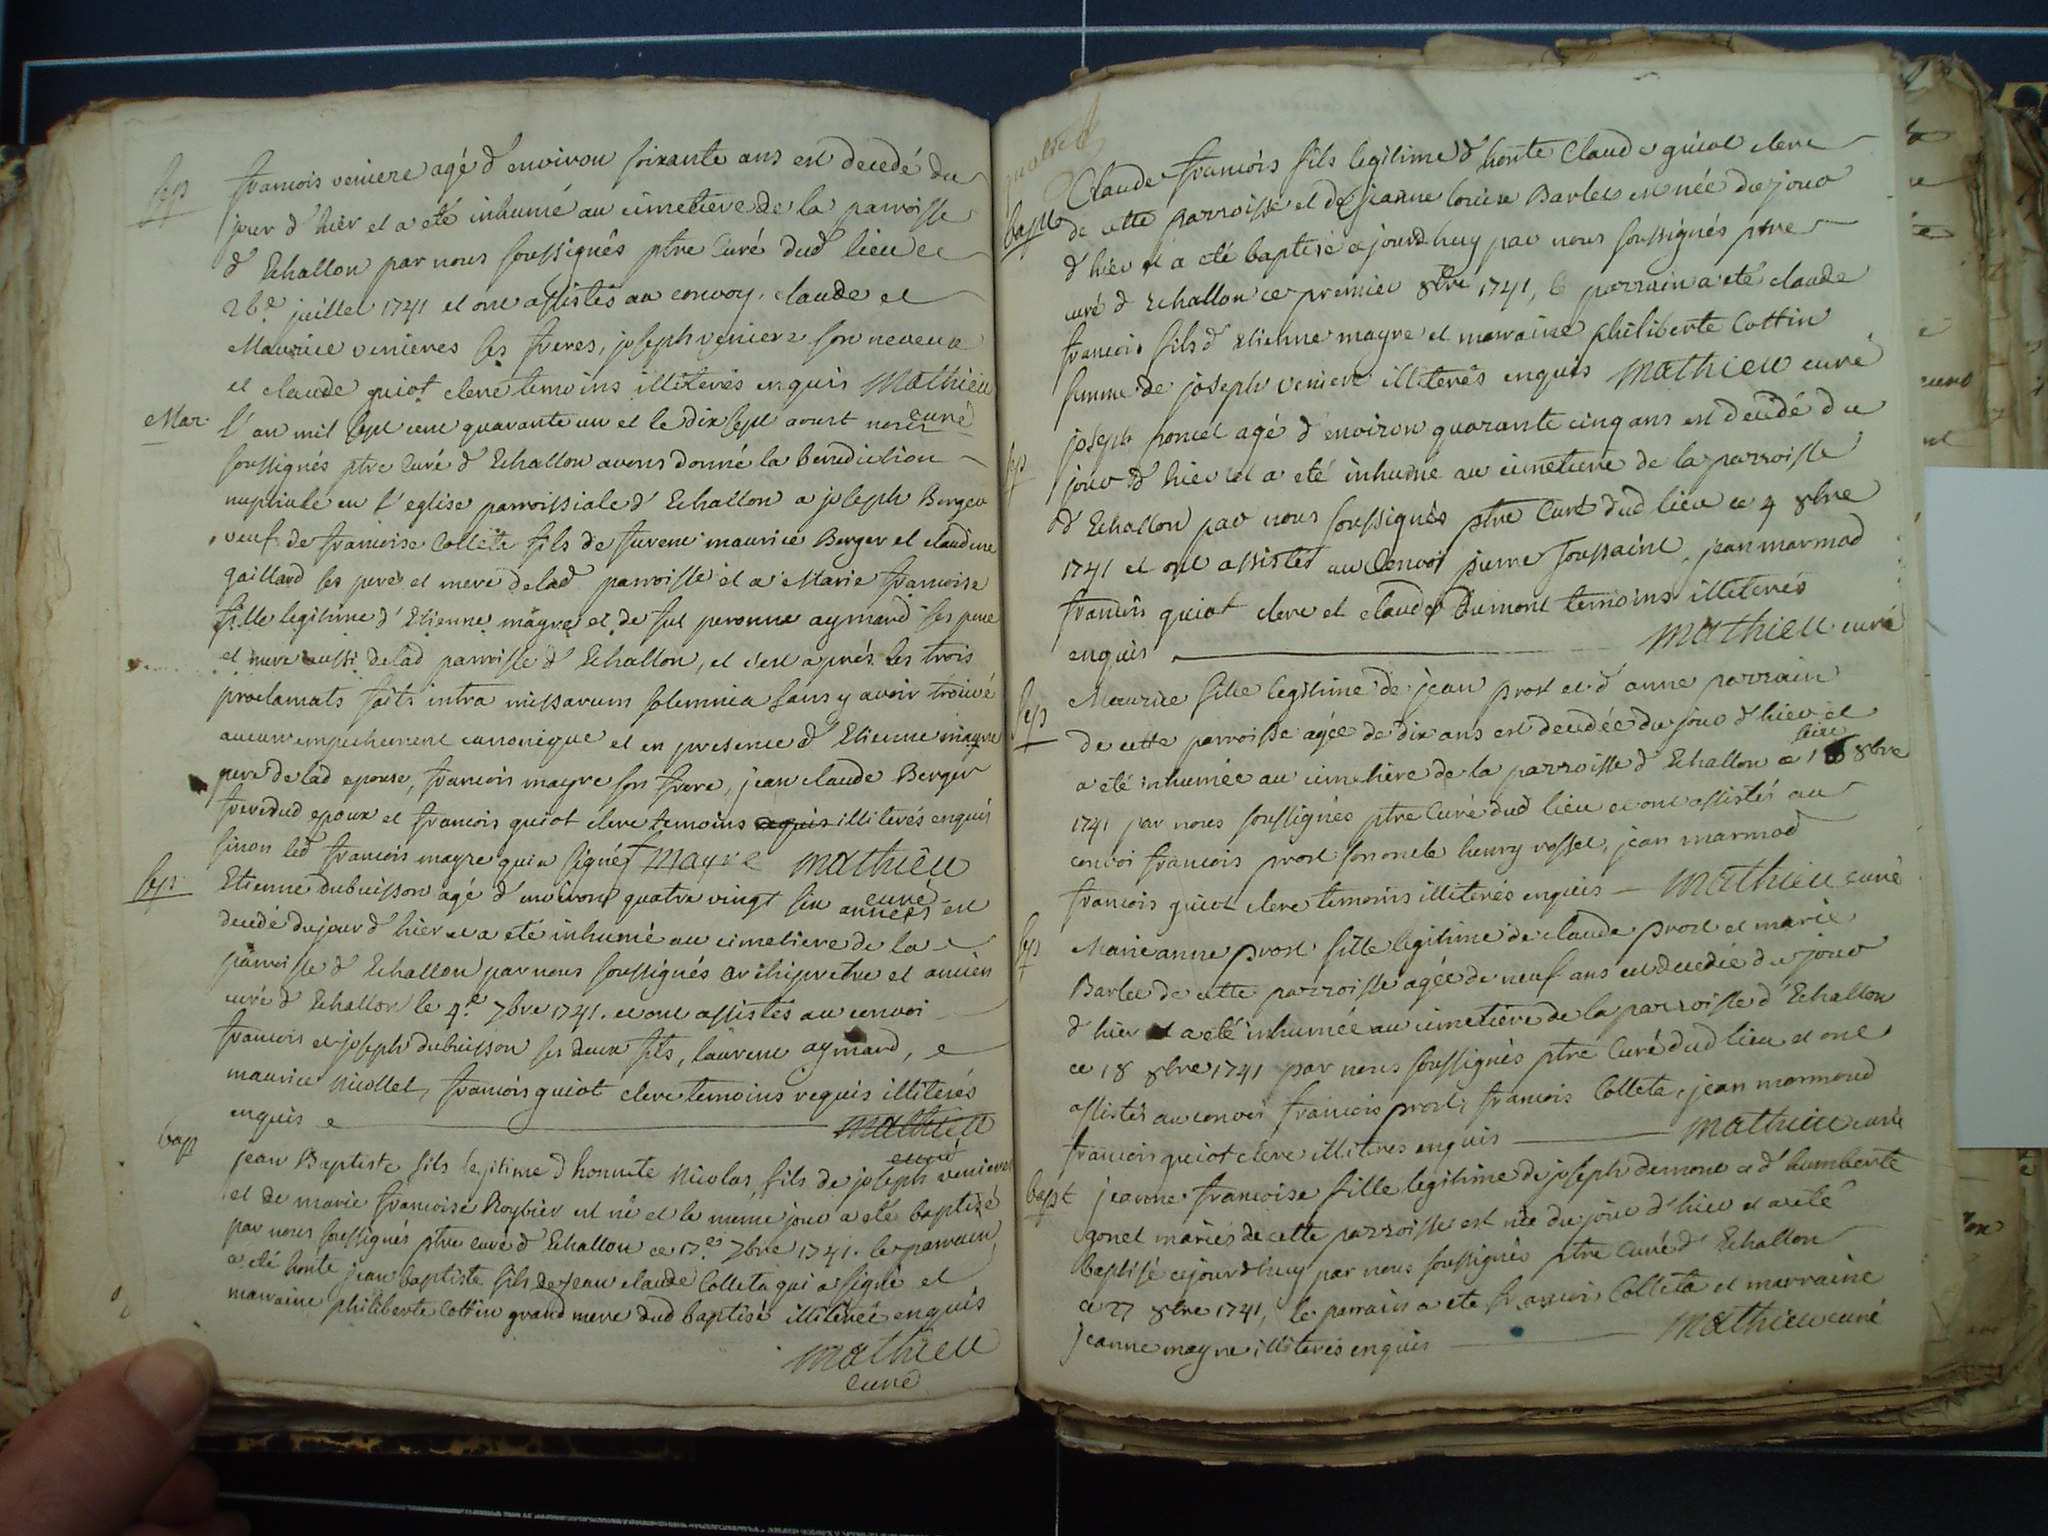 sep
francois veniere agé d'environ soixante ans est decedé du
jour d'hier et a été inhumé au cimetiere de la parroisse
d'Echallon par nous soussignés ptre Curé dud lieu ce
26e juillet 1741 et ont assistés au convoy, claude et
Maurice venieres ses freres, joseph veniere son neveux
et claude guiot clerc temoins illiterés enquis Mathieu
curé
Mar.
L'an mil sept cent quarante un et le dix sept aoust nous
soussignés ptre Curé d'Echallon avons donné la benediction
nuptiale en l'eglise parroissiale d'Echallon a joseph Berger
veuf de francoise Colleta fils de maurice Berger et claudine
gaillard ses pere et mere de lad parroisse et a Marie francoise
fille legitime d'Etienne mayre et de feue peronne aymard ses pere
et mere aussi de lad parroisse d'Echallon, et c'est aprés les trois
proclamats faits intra missarum solemnia sans y avoir trouvé
aucun empechement canonique et en presence d'Etienne mayre
pere de lad epouse, francois mayre son frere, jean claude Berger
frere dud epoux et francois guiot clerc temoins requis illiterés enquis
sinon led francois mayre qui a signé f mayre Mathieu
curé
sep.
Etienne dubuisson agé d'environ quatre vingt six années est
decedé du jour d'hier et a eté inhumé au cimetiere de la
parroisse d'Echallon par nous soussignés archipretre et ancien
curé d'Echallon le 4e 7bre 1741. et ont assistés au convoi
francois et joseph dubuisson ses deux fils, laurent aymard,
maurice Nicollet, francois guiot clerc temoins requis illiterés
enquis Mathieu
curé
bap
jean Baptiste fils legitime d'honnete Nicolas, fils de joseph veniere
et de marie francoise Roybier est né et le meme jour a eté baptisé
par nous soussignés ptre curé d'Echallon ce 17es 7bre 1741. le parrain
a eté honte jean baptiste fils de jean claude Colleta qui a signé et
marraine philiberte Cottin grand mere dud baptisé illiterée enquis
Mathieu
curé
bapt
Claude francois fils legitime d'honte Claude guiot clerc
de cette parroisse et de jeanne louise Barlet est née du jour
d'hier et a eté baptisé cejourdhuy par nous soussignés ptre
curé d'Echallon ce premier 8bre 1741, le parrain a eté claude
francois fils d'Etienne mayre et marraine philiberte Cottin
femme de joseph veniere illiterés enquis Mathieu curé
sep
joseph poncet agé d'environ quarante cinq ans est decedé du
jour d'hier et a eté inhumé au cimetiere de la parroisse
d'Echallon par nous soussignés ptre Curé dud lieu ce 4 8bre
1741 et ont assistés au Convoi pierre Toussaint, jean marmod
francois guiot clerc et claude Dumont temoins illiterés
enquis Mathieu curé
sep
Maurice fille legitime de jean prost et d'anne parrain
de cette parroisse agée de dix ans est decedée du jour d'hier et
a eté inhumée au cimetiere de la parroisse d'Echallon ce 8bre
1741 par nous soussignés ptre Curé dud lieu et ont assistés au
convoi francois prost son oncle henry rosset, jean marmod
francois guiot clerc temoins illiterés enquis Mathieu curé
sep
Marie anne prost fille legitime de claude prost et marie
Barlet de cette parroisse agée de neuf ans est decedée du jour
d'hier et a eté inhumée au cimetiere de la parroisse d'Echallon
ce 18 8bre 1741 par nous soussignés ptre Curé dud lieu et ont
assistés au convoi francois prost, francois Colleta, jean marmoud
francois guiot clerc illiteres enquis Mathieu curé
bapt
jeanne francoise fille legitime de joseph dumont et d'humberte
gonet mariés de cette parroisse est née du jour d'hier et a eté
baptisé cejourdhuy par nous soussignés ptre Curé d'Echallon
ce 27 8bre 1741, le parrain a eté francois Colleta et marraine
jeanne mayre illiterés enquis Mathieu curé